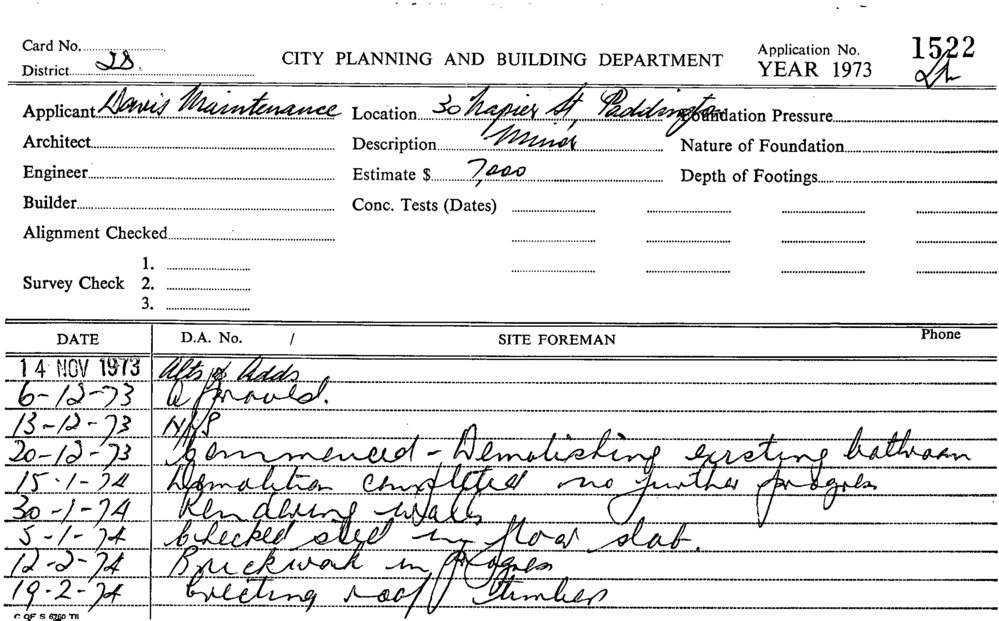 Card No.
District 28.
CITY PLANNING AND BUILDING DEPARTMENT
Application No. 1522
YEAR 1973
Applicant Davis Maintenance Location 30 Napier St, Paddington Foundation Pressure
Architect Description Minor Nature of Foundation
Engineer Estimate $ 7,000 Depth of Footings
Builder Conc. Tests (Dates)
Alignment Checked
Survey Check 1.
2.
3.
DATE D.A. No. / SITE FOREMAN Phone
14 NOV 1973 Alts & Adds
6-12-73 Approved.
13-12-73 N/S
20-12-73 Commenced - Demolishing existing bathroom
15-1-74 Demolition completed no further progress
30-1-74 Rendering walls
5-1-74 Checked steel in floor slab.
12-2-74 Brickwork in progress
19-2-74 Erecting roof timbers
C OF S 6760 T6